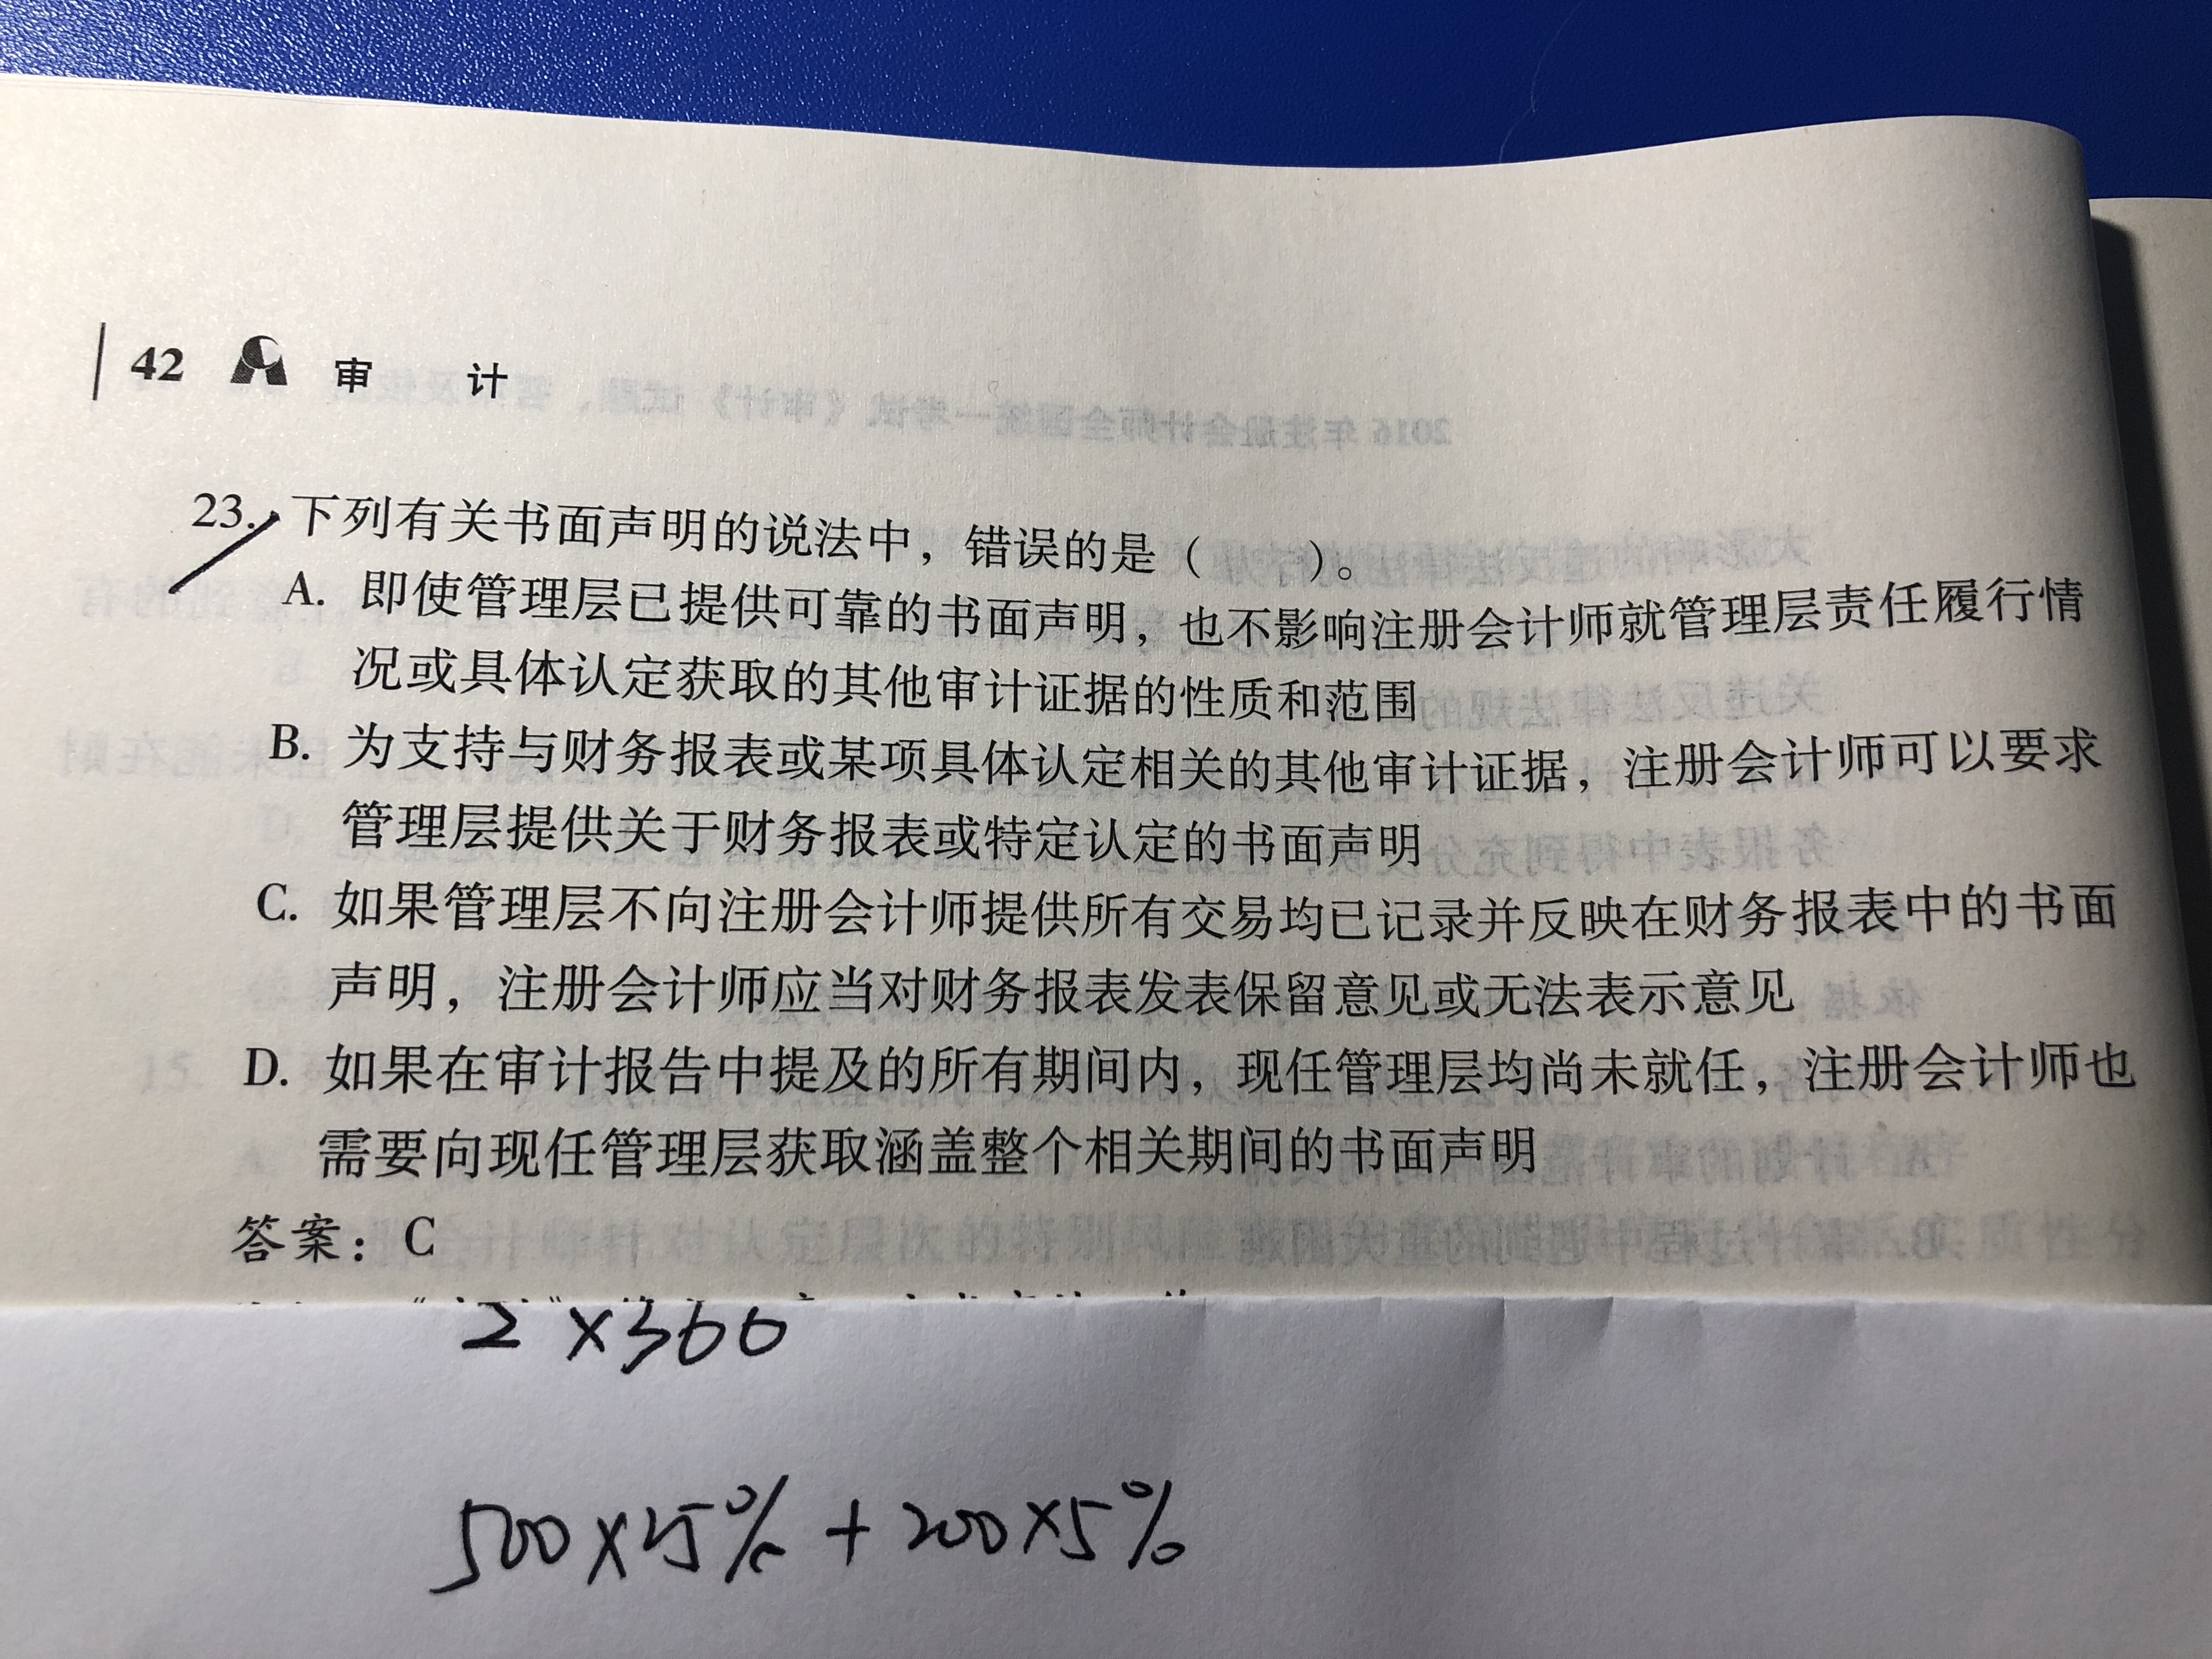 42 审 计
2016年注册会计师全国统一考试《审计》试题、答案及依据
23. 下列有关书面声明的说法中，错误的是（ ）。
A. 即使管理层已提供可靠的书面声明，也不影响注册会计师就管理层责任履行情
况或具体认定获取的其他审计证据的性质和范围
B. 为支持与财务报表或某项具体认定相关的其他审计证据，注册会计师可以要求
管理层提供关于财务报表或特定认定的书面声明
C. 如果管理层不向注册会计师提供所有交易均已记录并反映在财务报表中的书面
声明，注册会计师应当对财务报表发表保留意见或无法表示意见
D. 如果在审计报告中提及的所有期间内，现任管理层均尚未就任，注册会计师也
需要向现任管理层获取涵盖整个相关期间的书面声明
答案：C
2×366
500×15%+200×5%